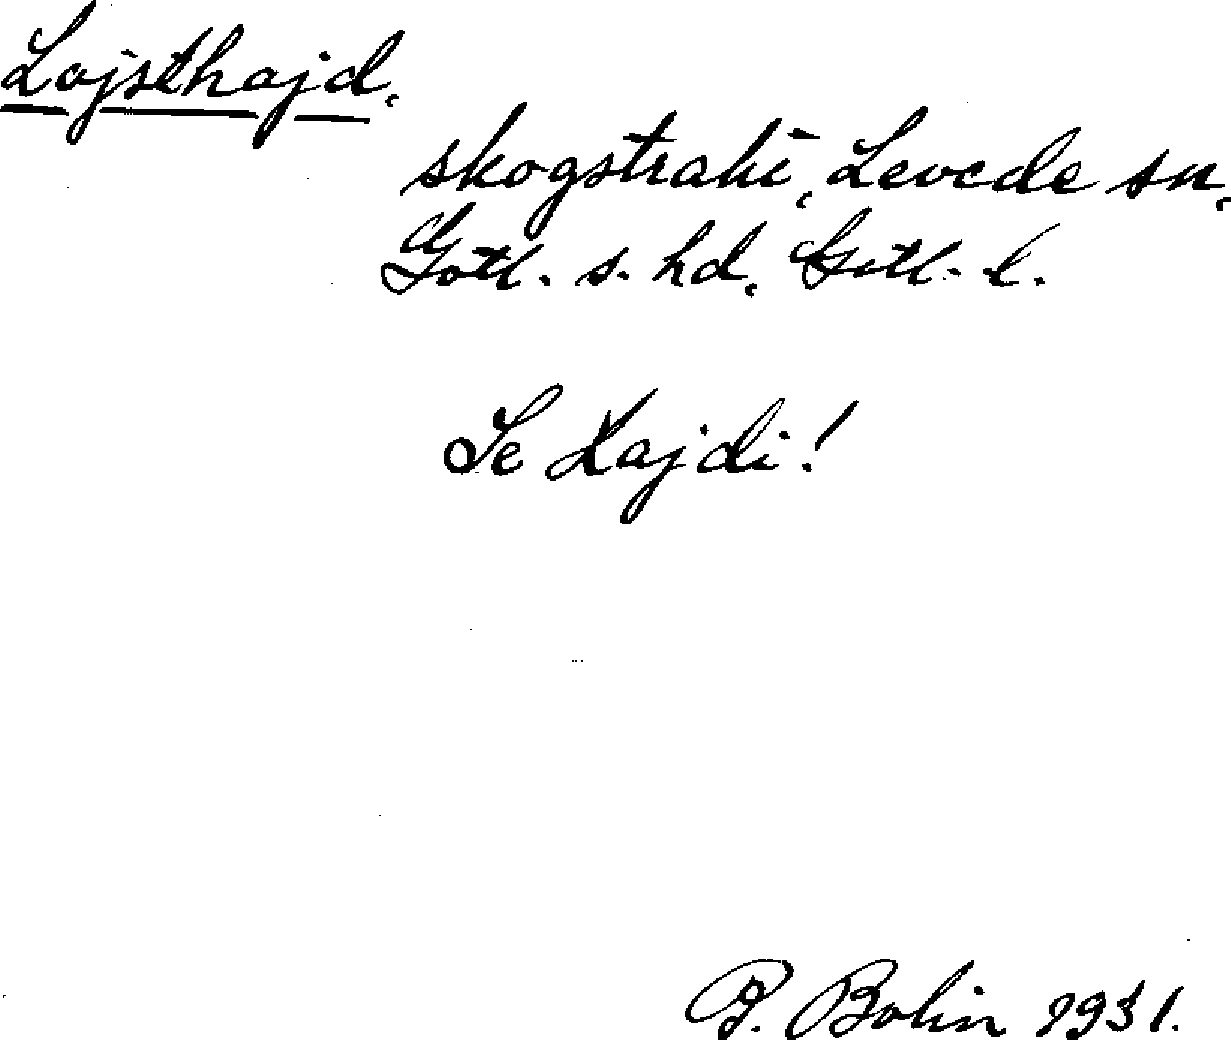 Lojsthajd,
skogstrakt, Levede sn,
Gotl. s. hd, Gotl. l.
Se Hajdi!
P. Bolin 1931.